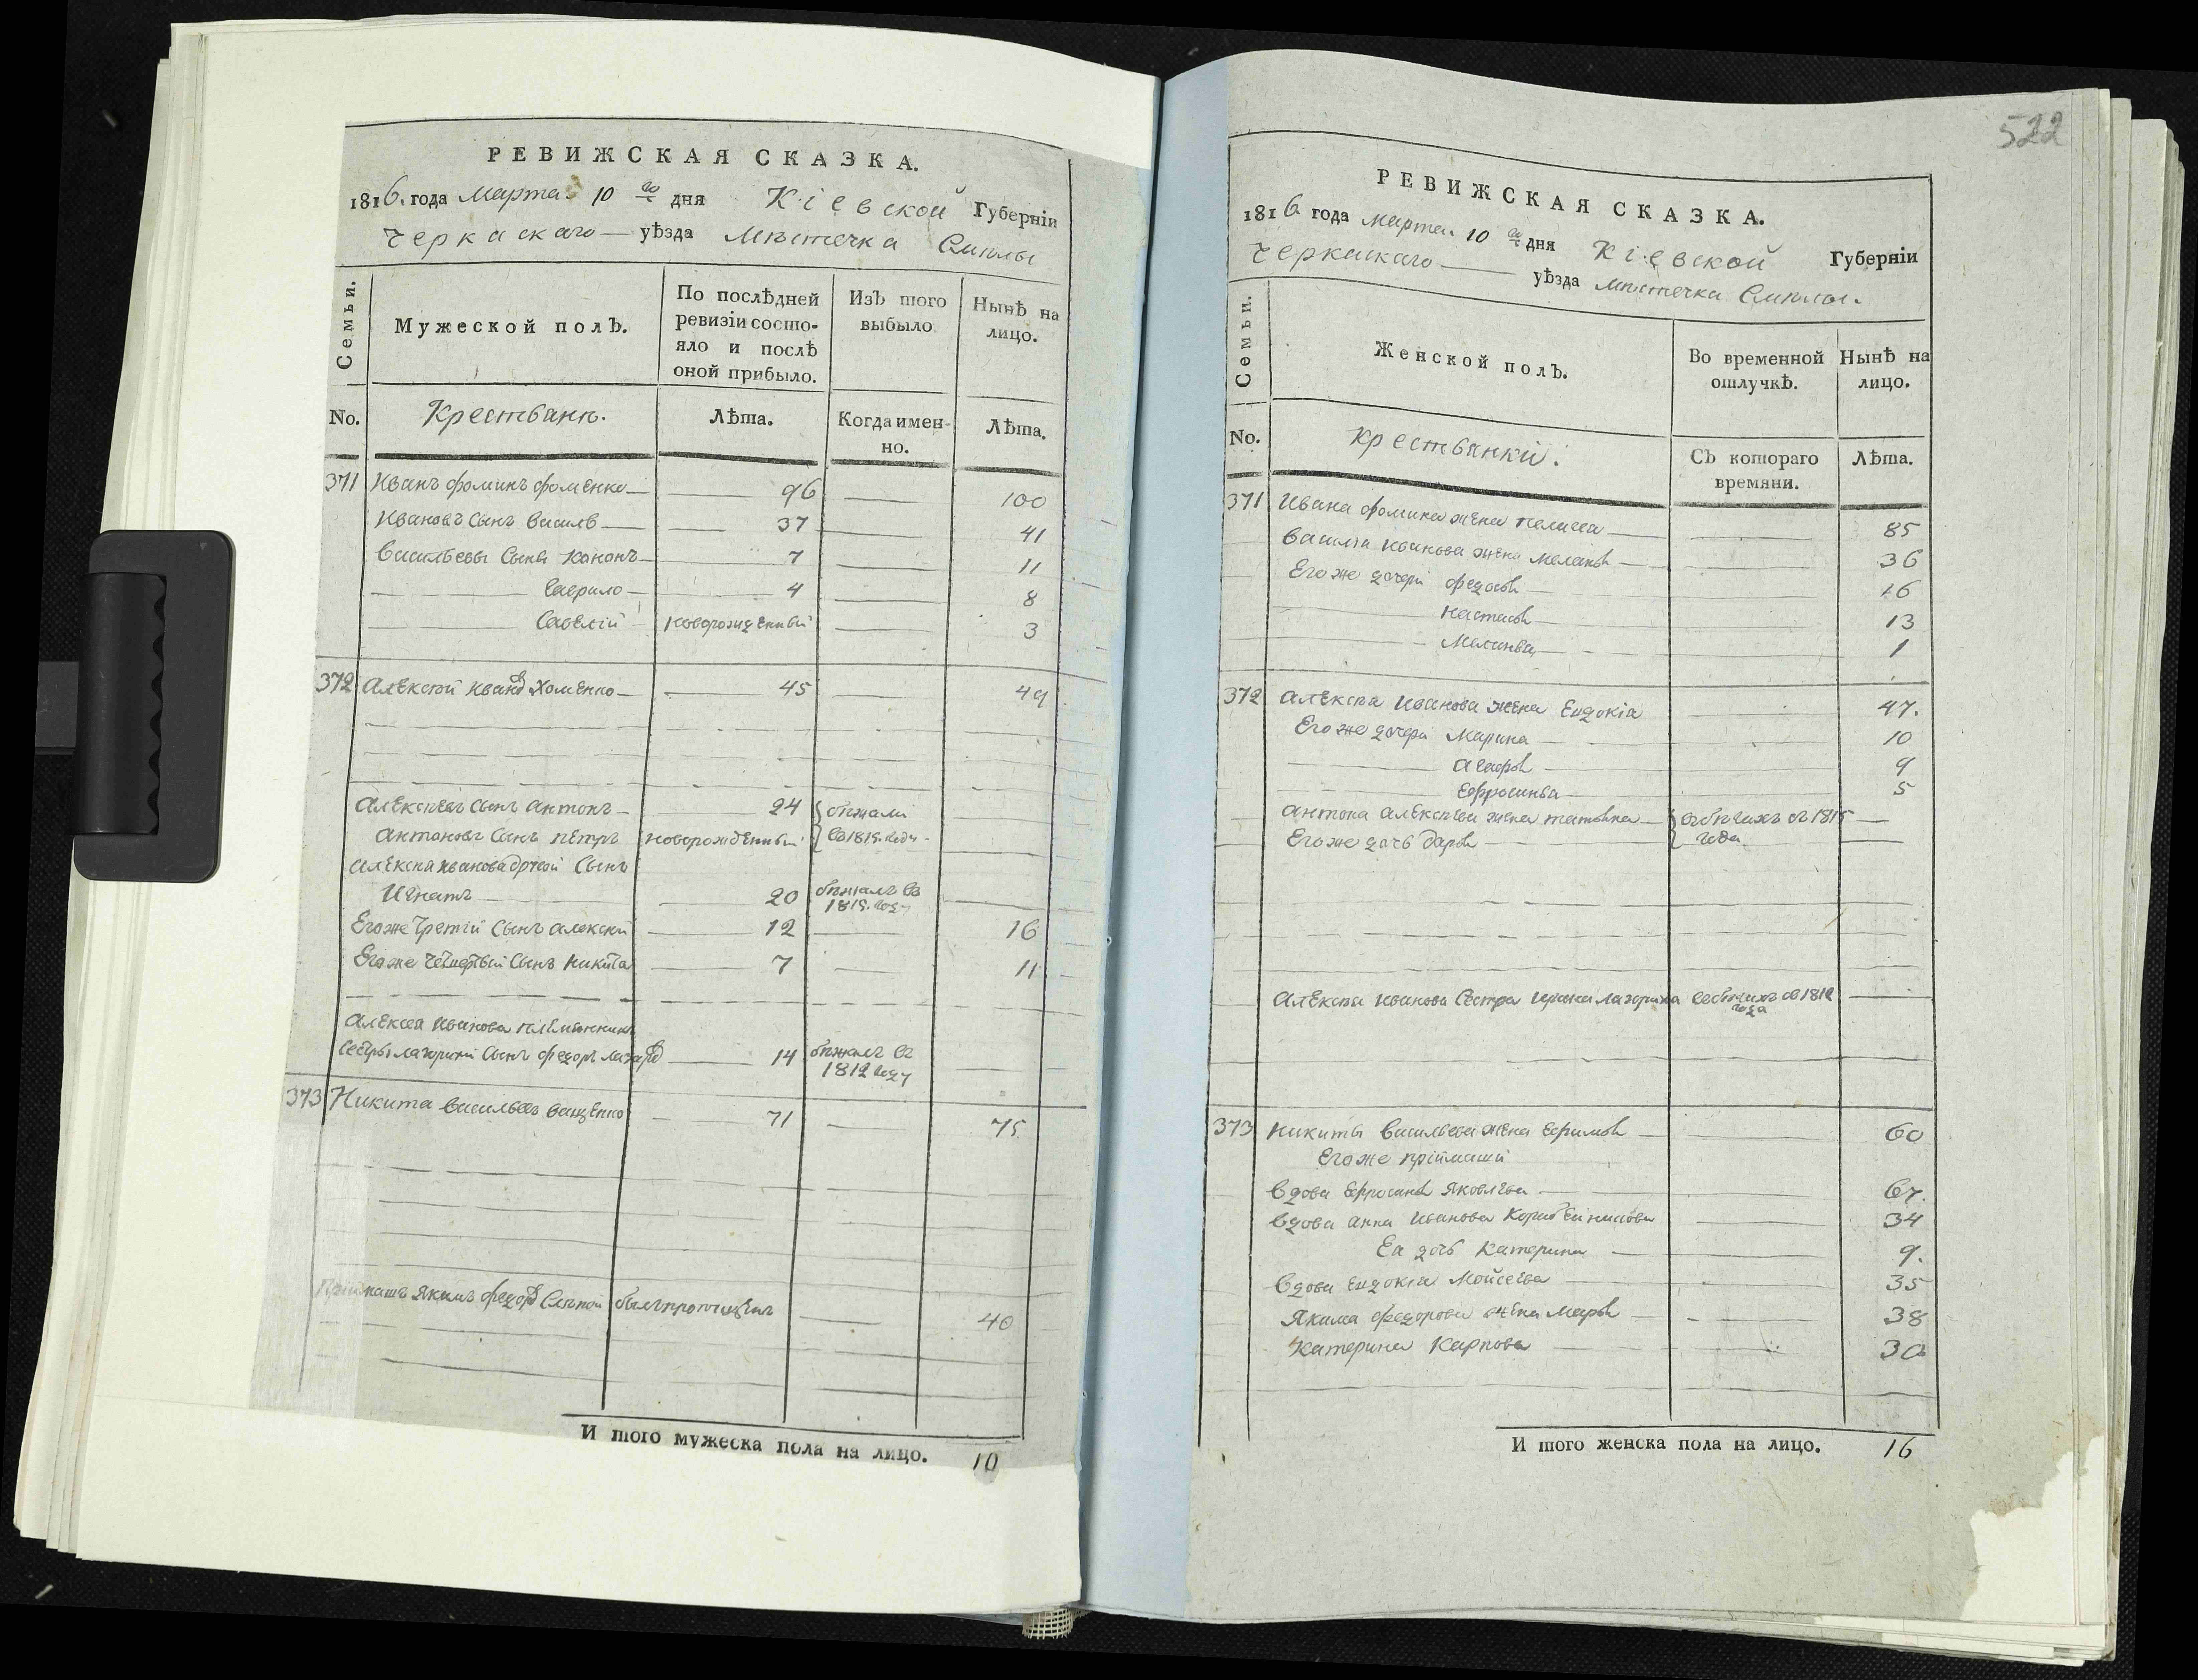 РЕВИЖСКАЯ СКАЗКА.
1816. года Марта 10 го дня Кіевской Губерніи
Черкаскаго уѣзда Мѣстечка Смѣлы
Семьи.
Мужеской полъ.
По послѣдней ревизіи состояло и послѣ оной прибыло.
Изъ того выбыло
Нынѣ на лицо.
No. Крестьянъ. Лѣта. Когда именно. Лѣта.
371 Иванъ Фоминъ Фоменко 96 100
Ивановъ Сынъ Василь 37 41
Васильевы Сыны Кононъ 7 11
Гаврило 4 8
Савелій новорожденный 3
372 Алексѣй Ивановъ Хоменко 45 49
Алексѣевъ Сынъ Антонъ 24 бѣжали
Антоновъ Сынъ Петръ новорожденный въ 1815. году
Алексѣя Иванова другой Сынъ
Игнатъ 20 бѣжалъ въ 1815. году
Егоже Третій Сынъ Алексѣй 12 16
Егоже Четвертый Сынъ Никита 7 11
Алексѣя Иванова племянникъ
Сестры Сынъ Федоръ 14 бѣжалъ въ 1812 году
373 Никита Васильевъ Ващенко 71 75
Пріймашъ Якимъ Федоровъ Слѣпой былъ пропущенъ 40
И того мужеска пола на лицо. 10
522
РЕВИЖСКАЯ СКАЗКА.
1816 года Марта. 10 го дня Кіевской Губерніи
Черкаскаго уѣзда Мѣстечка Смѣлы.
Семьи.
Женской полъ.
Во временной отлучкѣ.
Нынѣ на лицо.
No. Крестьянки. Съ котораго времяни. Лѣта.
371 Ивана Фомина жена Пелагея 85
Василія Иванова жена Меланья 36
Егоже дочери Федосья 16
Настасья 13
Маланья 1
372 Алексѣя Иванова жена Евдокія 47.
Егоже дочери Марина 10
Агафья 9
Ефросинья 5
Антона Алексѣева жена Татьяна въ бѣгахъ съ 1815
Егоже дочь Дарья года
Алексѣя Иванова Сестра въ бѣгахъ съ 1812 года
373 Никиты Васильева жена Ефимья 60
Егоже пріймаши
Вдова Ефросинья Яковлева 67.
Вдова Анна Иванова 34
Ея дочь Катерина 9.
Вдова Евдокія Мойсеева 35
Якима Федорова жена Марья 38
Катерина Карпова 30
И того женска пола на лицо. 16